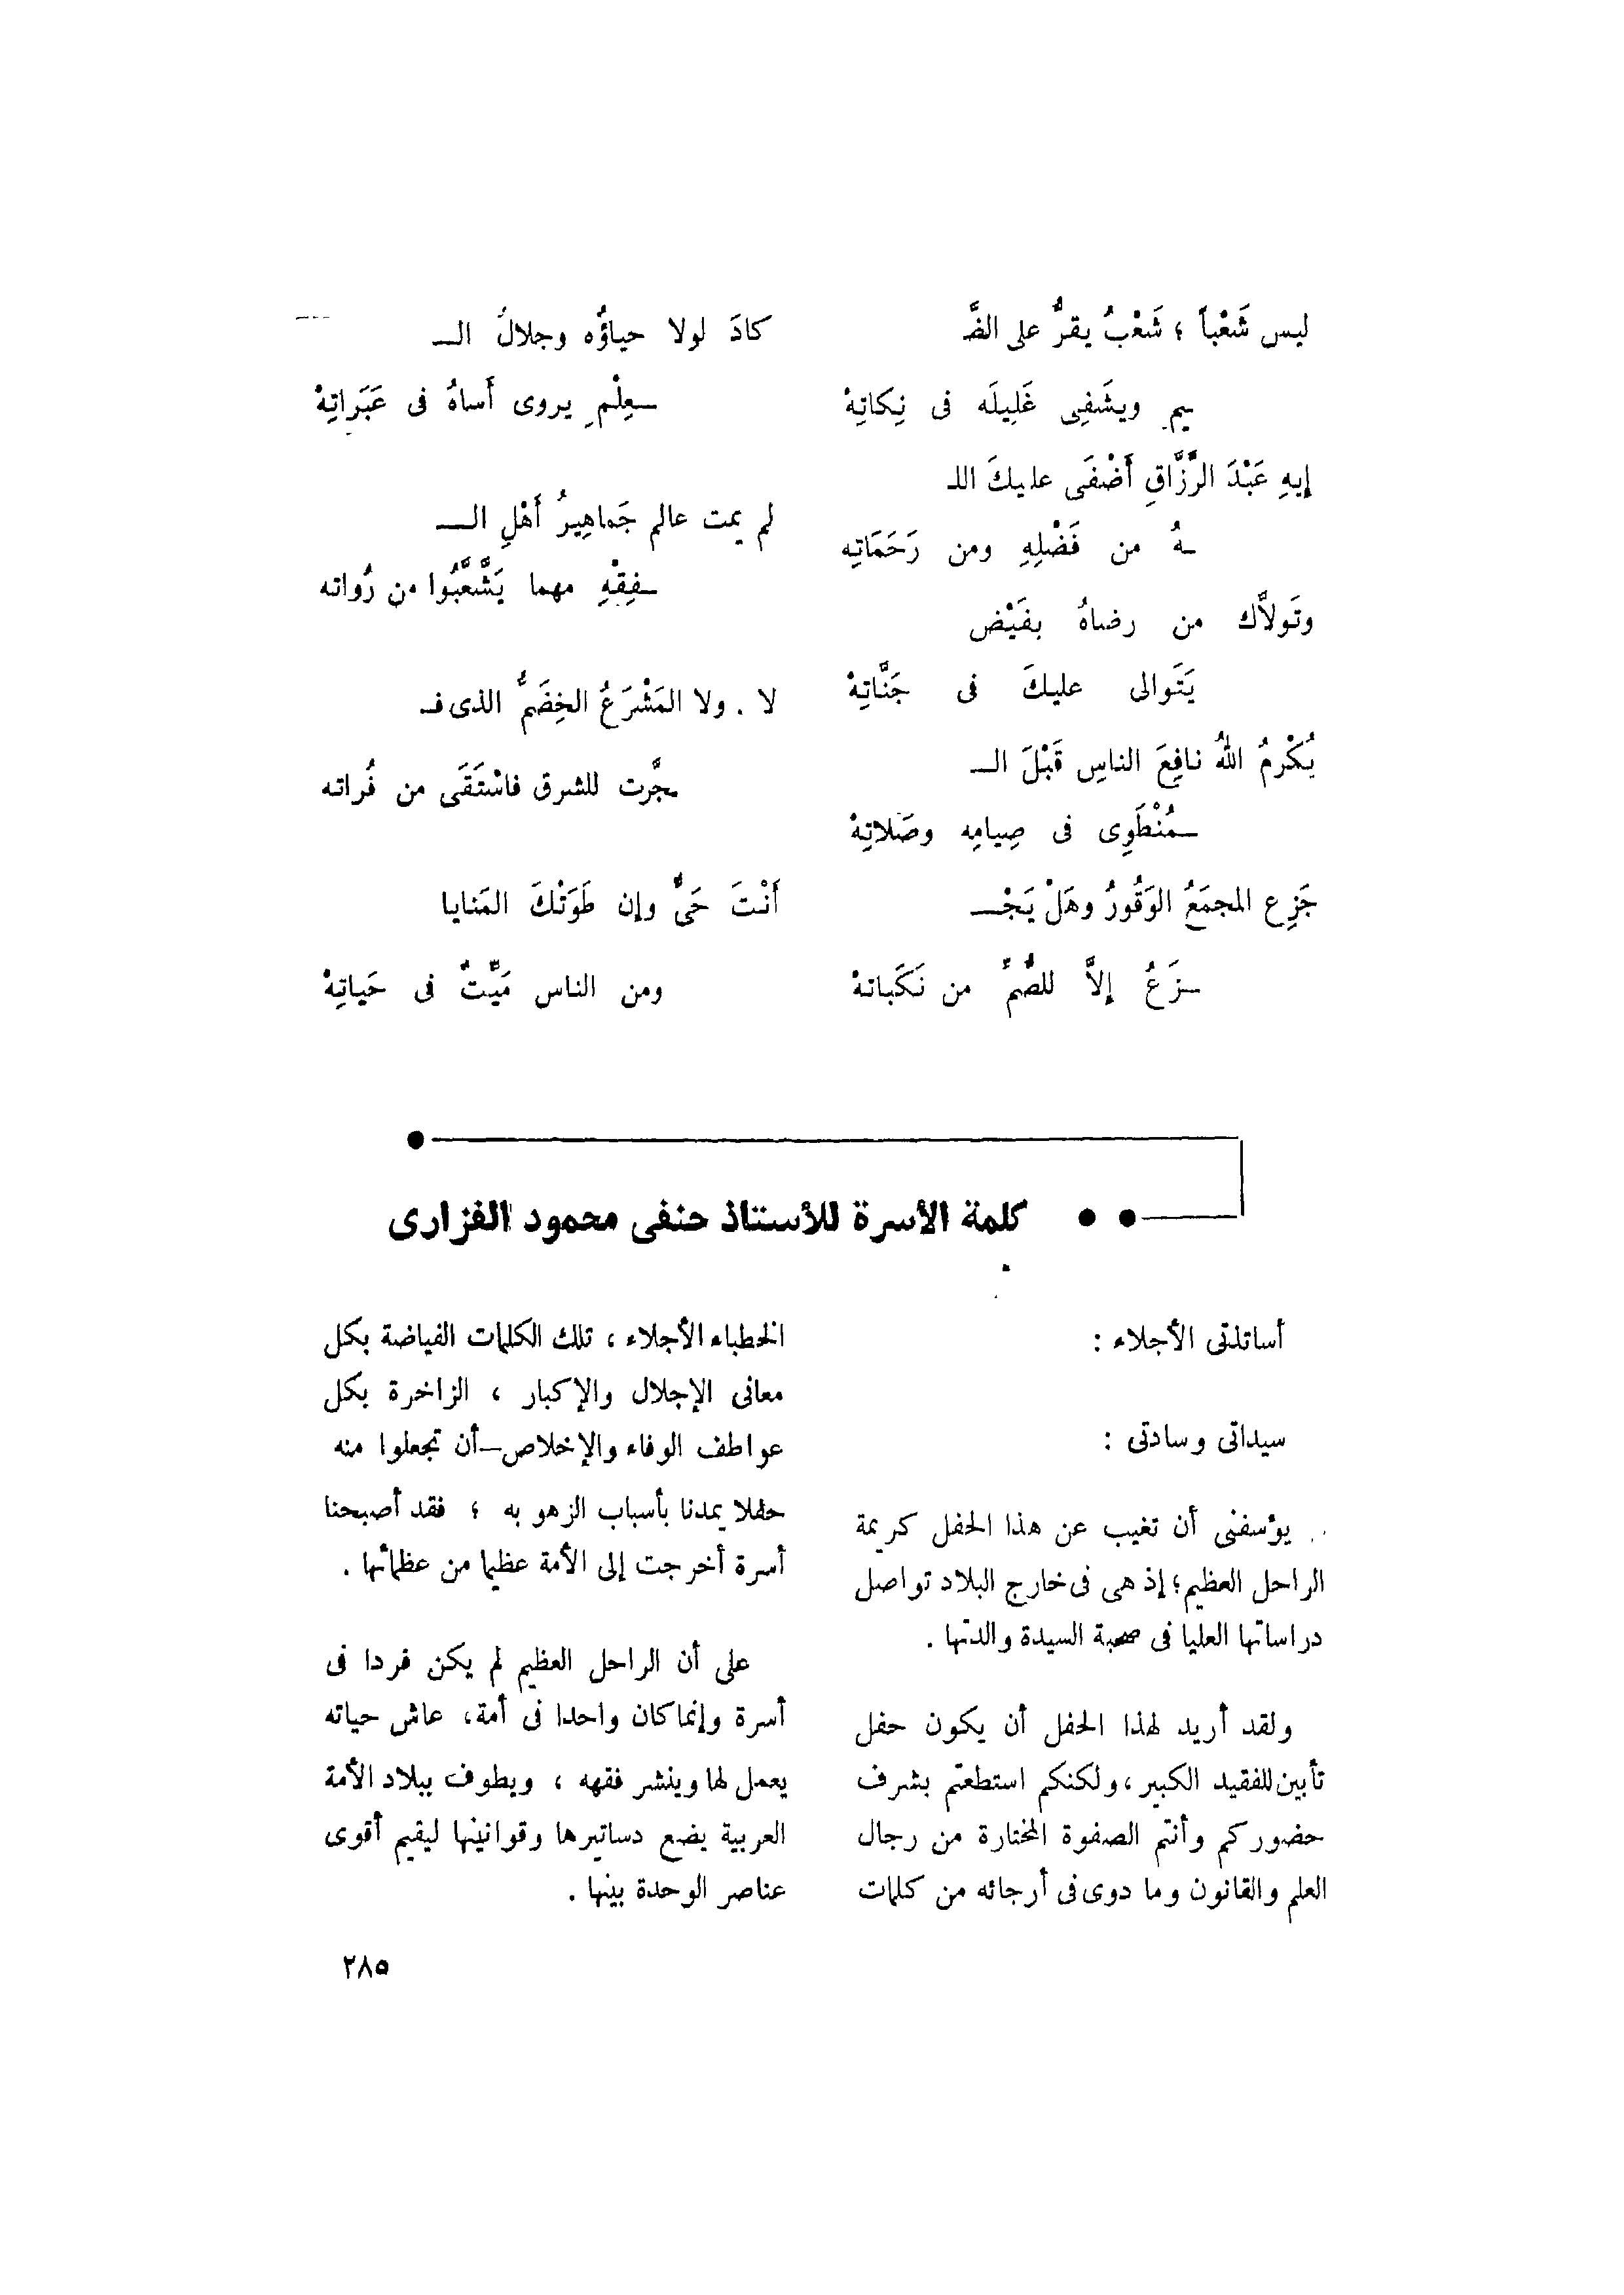 ليس شَعْباً ؛ شَعْبٌ يقرُّ على الضَّـ
ـيم ويشَفِى غَلِيلَه فى نِكاتِهْ
إيهِ عَبْدَ الرَّزَّاقِ أَضْفَى عليكَ اللـ
ـهُ من فَضْلِهِ ومن رَحَمَاتِه
وتَولاَّك من رضاهُ بفَيْض
يَتَوالى عليكَ فى جَنَّاتِهْ
يُكْرمُ اللهُ نافِعَ الناسِ قَبْلَ الـ
ـمُنْطَوِى فى صِيامِه وصَلاتِهْ
جَزِع المجمَعُ الوَقُورُ وهَلْ يَجْـ
ـزَعُ إلاَّ للصُّمِّ من نَكَباتهْ
كادَ لولا حياؤُه وجلالُ الـ
ـعِلْمِ يروى أَساهُ فى عَبَرَاتِهْ
لم يمت عالم جَماهِيرُ أَهْلِ الـ
ـفِقْهِ مهما يَشَّعَّبُوا من رُواته
لا . ولا المَشْرَعُ الخِضَمُّ الذى فـ
ـجَّرت للشرق فاسْتَقَى من فُراته
أَنْتَ حَىٌّ وإن طَوَتْكَ المَنايا
ومن الناس مَيِّتٌ فى حَياتِهْ
كلمة الأسرة للأستاذ حنفى محمود الفزارى
أساتذتى الأجلاء :
سيداتى وسادتى :
يؤسفنى أن تغيب عن هذا الحفل كريمة
الراحل العظيم؛ إذ هى فى خارج البلاد تواصل
دراساتها العليا فى صحبة السيدة والدتها .
ولقد أريد لهذا الحفل أن يكون حفل
تأبين للفقيد الكبير، ولكنكم استطعتم بشرف
حضوركم وأنتم الصفوة المختارة من رجال
العلم والقانون وما دوى فى أرجائه من كلمات
الخطباء الأجلاء ، تلك الكلمات الفياضة بكل
معانى الإجلال والإكبار ، الزاخرة بكل
عواطف الوفاء والإخلاص–أن تجعلوا منه
حفلا يمدنا بأسباب الزهو به ؛ فقد أصبحنا
أسرة أخرجت إلى الأمة عظيما من عظمائها .
على أن الراحل العظيم لم يكن فردا فى
أسرة وإنما كان واحدا فى أمة، عاش حياته
يعمل لها وينشر فقهه ، ويطوف ببلاد الأمة
العربية يضع دساتيرها وقوانينها ليقيم أقوى
عناصر الوحدة بينها .
٢٨٥